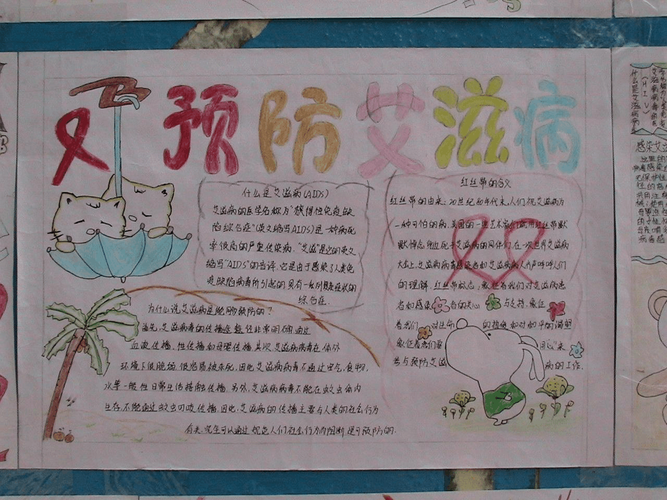 预防艾滋病
什么是艾滋病(AIDS)
艾滋病的医学名称为“获得性免疫缺
陷综合征”(英文缩写AIDS)是一种病死
率很高的严重传染病。“艾滋”是它的英文
缩写“AIDS”的音译。它是由于感染了人类免
疫缺陷病毒所引起的
综合征。
红丝带的含义
红丝带的由来：20世纪80年代末，人们视艾滋病为
一种可怕的病，美国的一些艺术家们就用红丝带默
默悼念身边死于艾滋病的同伴们。在一次世界艾滋病
大会上，艾滋病病毒感染者和艾滋病病人齐声呼吁人们
的理解，红丝带
者和感染者的关心与支持，象征
着我们对生命的热爱和对和平的渴望
象征着我们要用“心”来
参与预防艾滋病的工作。
为什么说艾滋病是能够预防的？
首先，艾滋病毒的传播途径
血液传播、性传播和母婴传播；其次，艾滋病病毒在体外
环境下很脆弱，很容易被杀死，因此艾滋病病毒不通过空气、食物、
水等一般性日常生活接触传播；另外，艾滋病病毒不能在蚊虫体内
生存，不能通过蚊虫叮咬传播。因此，艾滋病的传播主要与人类的社会行为
有关，完全可以通过规范人们社会行为而阻断，是可预防的。